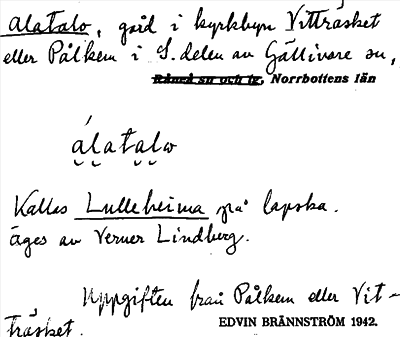 Alatalo, gård i kyrkbyn Vitträsket
eller Pålkem i S. delen av Gällivare sn,
Råneå sn och tg, Norrbottens län
álatalω
Kallas Lulleheima på lapska.
Äges av Verner Lindberg.
Uppgiften från Pålkem eller Vit-
träsket.
EDVIN BRÄNNSTRÖM 1942.